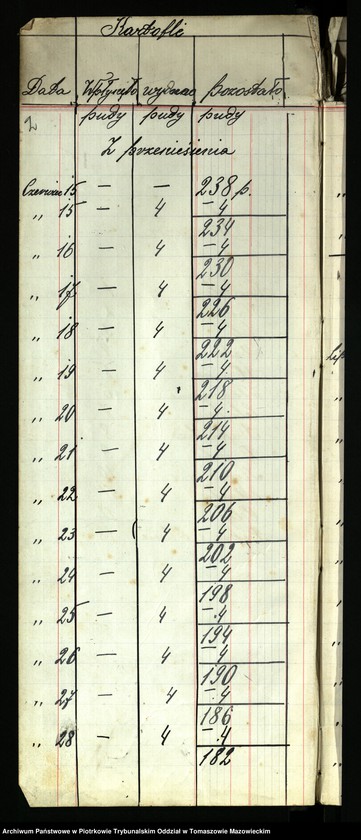 Kartofli
Data Wpłynęło wydano pozostało
2 pudy pudy pudy
Z przeniesienia
Czerwiec 15 — — 238 p.
„ 15 — 4 — 4
234
„ 16 — 4 — 4
230
„ 17 — 4 — 4
226
„ 18 — 4 — 4
222
„ 19 — 4 — 4
218
„ 20 — 4 — 4
214
„ 21 — 4 — 4
210
„ 22 — 4 — 4
206
„ 23 — 4 — 4
202
„ 24 — 4 — 4
198
„ 25 — 4 — 4
194
„ 26 — 4 — 4
190
„ 27 — 4 — 4
186
„ 28 — 4 — 4
182
Archiwum Państwowe w Piotrkowie Trybunalskim Oddział w Tomaszowie Mazowieckim